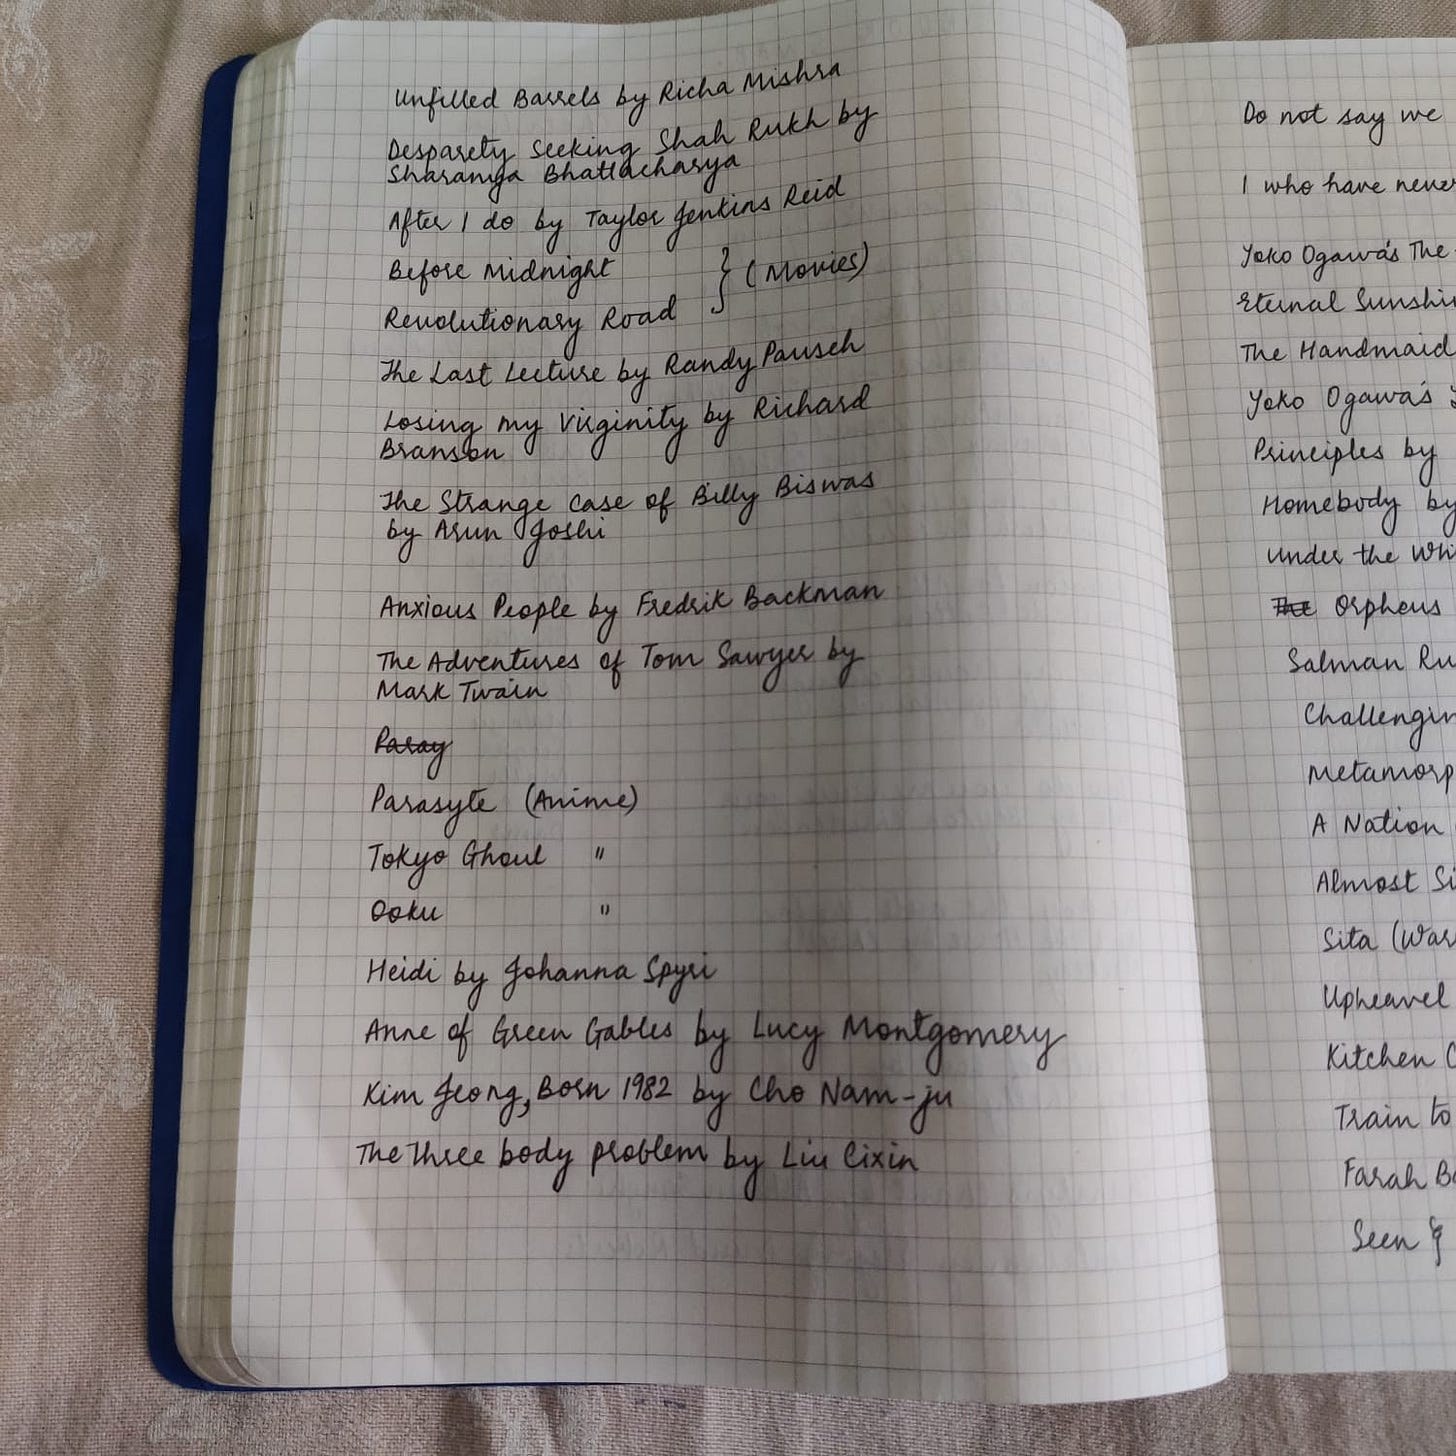 Unfilled Barrels by Richa Mishra
Desparety Seeking Shah Rukh by
Sharanya Bhattacharya
After I do by Taylor Jenkins Reid
Before Midnight
} (Movies)
Revolutionary Road
The Last Lecture by Randy Pausch
Losing my Virginity by Richard
Branson
The Strange Case of Billy Biswas
by Arun Joshi
Anxious People by Fredrik Backman
The Adventures of Tom Sawyer by
Mark Twain
Paray
Parasyte (Anime)
Tokyo Ghoul "
Ooku "
Heidi by Johanna Spyri
Anne of Green Gables by Lucy Montgomery
Kim Jeong, Born 1982 by Cho Nam-ju
The Three body problem by Liu Cixin
Do not say we
I who have never
Yoko Ogawa's The
Eternal Sunshi
The Handmaid
Yoko Ogawa's
Principles by
Homebody by
Under the Whi
The Orpheus
Salman Ru
Challengin
Metamorp
A Nation
Almost Si
Sita (War
Upheavel
Kitchen C
Train to
Farah Ba
Seen &